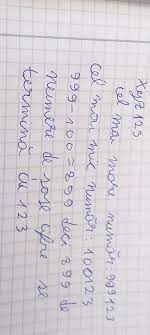 xyz123
cel mai mare număr 999123
cel mai mic număr: 100123
999-100=899 deci 899 de
numere de șase cifre se
termină cu 123